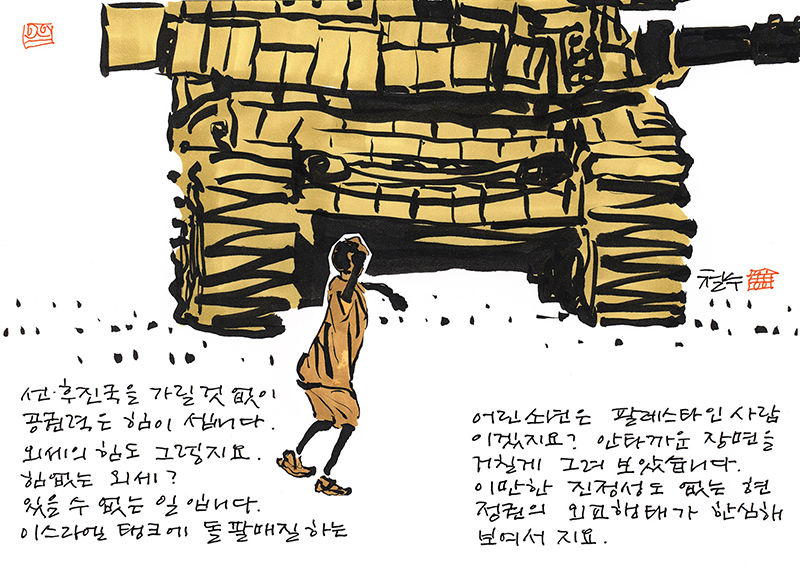 철수
선·후진국을 가릴 것 없이
공권력은 힘이 셉니다.
외세의 힘도 그렇지요.
힘없는 외세?
있을 수 없는 일입니다.
이스라엘 탱크에 돌팔매질하는
어린 소년은 팔레스타인 사람
이겠지요? 안타까운 장면을
거칠게 그려 보았습니다.
이만한 진정성도 없는 현
정권의 외교행태가 한심해
보여서지요.